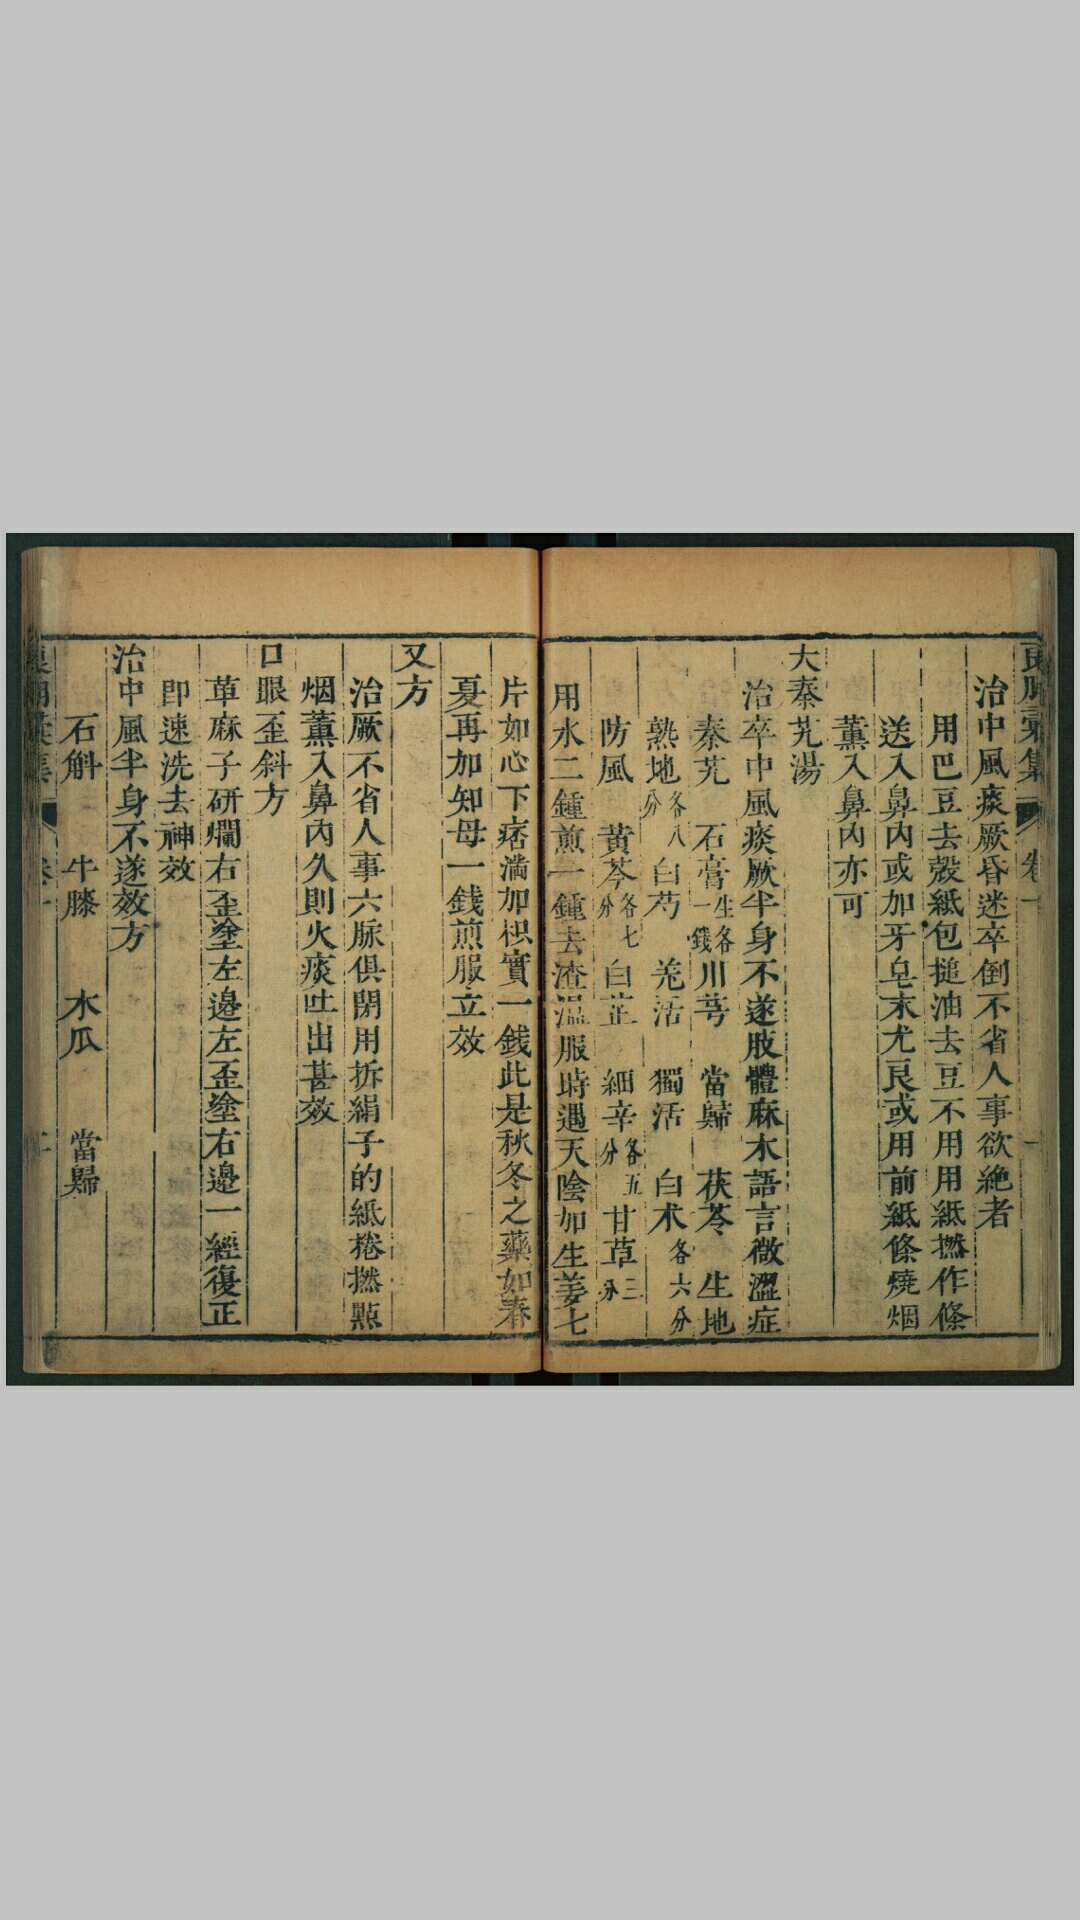 彙集 卷一
治中風痰厥昏迷卒倒不省人事欲絶者
用巴豆去殼紙包搥油去豆不用用紙撚作條
送入鼻內或加牙皂末尤良或用前紙條燒烟
薰入鼻內亦可
大秦艽湯
治卒中風痰厥半身不遂肢體麻木語言微澀症
秦艽 石膏生各一錢 川芎 當歸 茯苓 生地
熟地各八分 白芍 羌活 獨活 白术各六分
防風 黄芩各七分 白芷 細辛各五分 甘草三分
用水二鍾煎一鍾去渣温服時遇天陰加生姜七
片如心下痞滿加枳實一錢此是秋冬之藥如春
夏再加知母一錢煎服立效
又方
治厥不省人事六脈俱閉用拆絹子的紙捲撚點
烟薰入鼻內久則火痰吐出甚效
口眼歪斜方
萆麻子研爛右歪塗左邊左歪塗右邊一經復正
即速洗去神效
治中風半身不遂效方
石斛 牛膝 木瓜 當歸